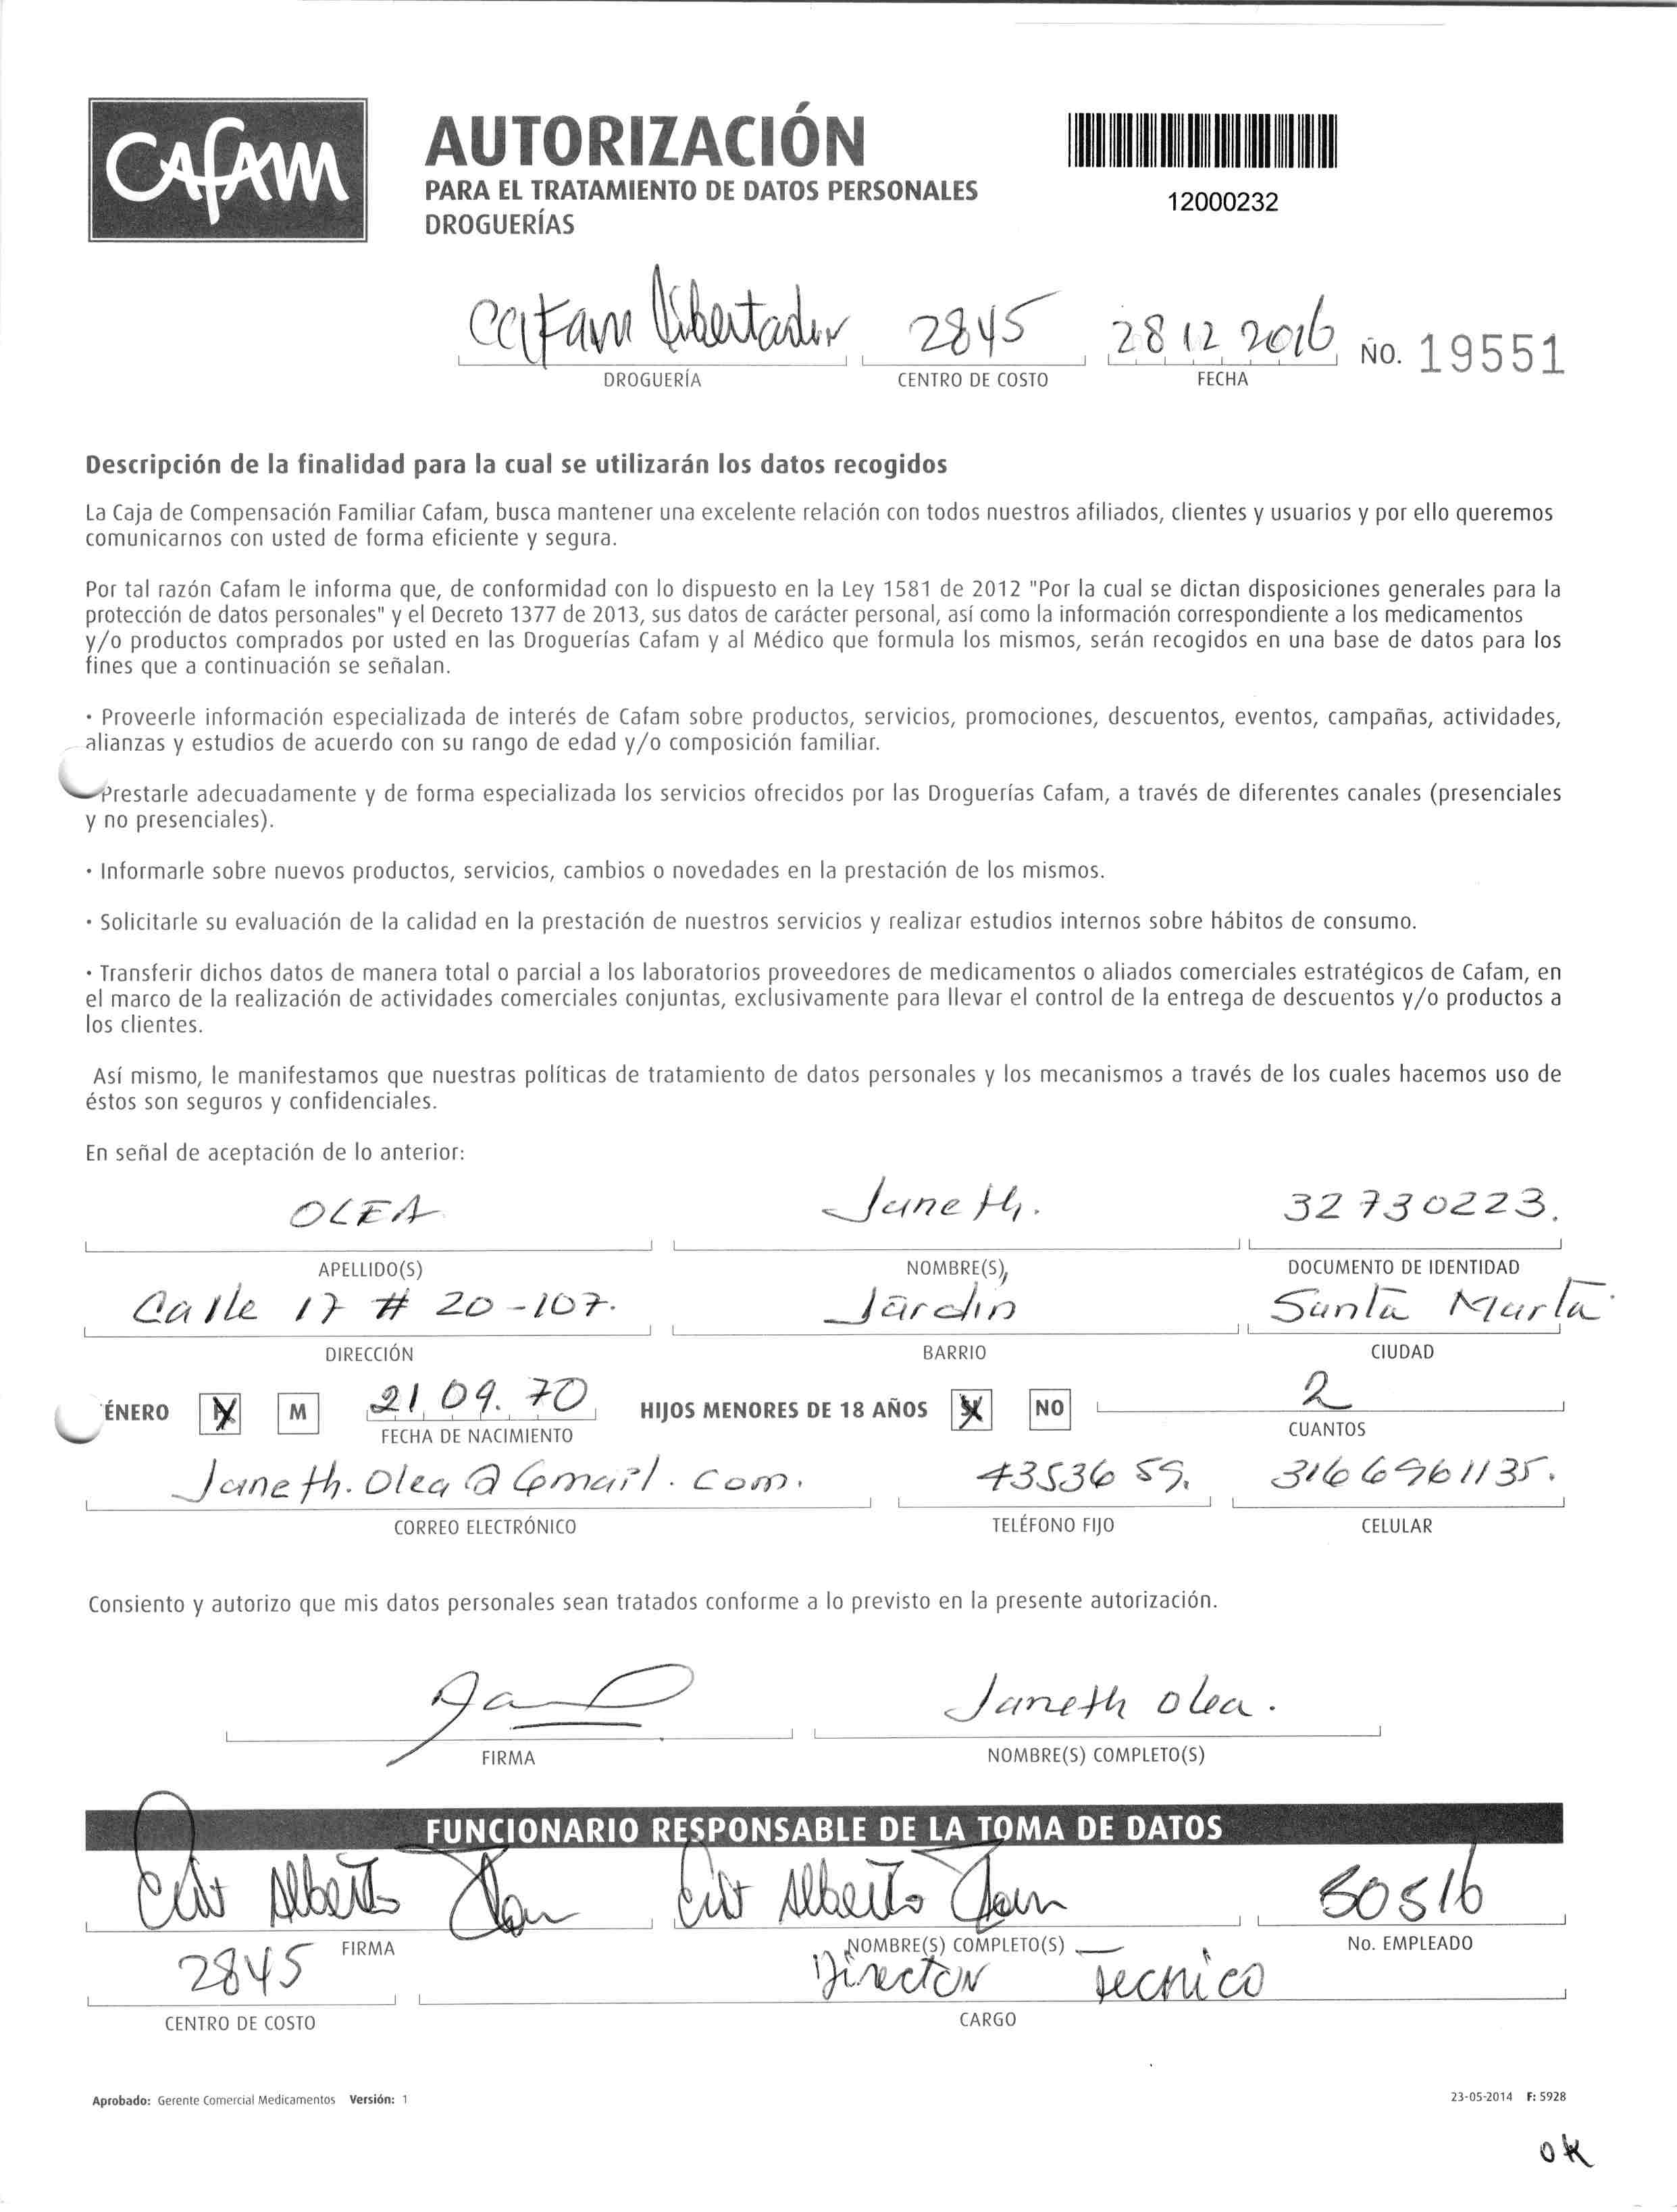 CAFAM
AUTORIZACIÓN
PARA EL TRATAMIENTO DE DATOS PERSONALES
DROGUERÍAS
12000232
Cafam Libertador 2845 28 12 2016 No. 19551
DROGUERÍA CENTRO DE COSTO FECHA
Descripción de la finalidad para la cual se utilizarán los datos recogidos
La Caja de Compensación Familiar Cafam, busca mantener una excelente relación con todos nuestros afiliados, clientes y usuarios y por ello queremos
comunicarnos con usted de forma eficiente y segura.
Por tal razón Cafam le informa que, de conformidad con lo dispuesto en la Ley 1581 de 2012 "Por la cual se dictan disposiciones generales para la
protección de datos personales" y el Decreto 1377 de 2013, sus datos de carácter personal, así como la información correspondiente a los medicamentos
y/o productos comprados por usted en las Droguerías Cafam y al Médico que formula los mismos, serán recogidos en una base de datos para los
fines que a continuación se señalan.
· Proveerle información especializada de interés de Cafam sobre productos, servicios, promociones, descuentos, eventos, campañas, actividades,
alianzas y estudios de acuerdo con su rango de edad y/o composición familiar.
Prestarle adecuadamente y de forma especializada los servicios ofrecidos por las Droguerías Cafam, a través de diferentes canales (presenciales
y no presenciales).
· Informarle sobre nuevos productos, servicios, cambios o novedades en la prestación de los mismos.
· Solicitarle su evaluación de la calidad en la prestación de nuestros servicios y realizar estudios internos sobre hábitos de consumo.
· Transferir dichos datos de manera total o parcial a los laboratorios proveedores de medicamentos o aliados comerciales estratégicos de Cafam, en
el marco de la realización de actividades comerciales conjuntas, exclusivamente para llevar el control de la entrega de descuentos y/o productos a
los clientes.
Así mismo, le manifestamos que nuestras políticas de tratamiento de datos personales y los mecanismos a través de los cuales hacemos uso de
éstos son seguros y confidenciales.
En señal de aceptación de lo anterior:
OLEA Janeth. 32730223.
APELLIDO(S) NOMBRE(S) DOCUMENTO DE IDENTIDAD
Calle 17 # 20-107. Jardin Santa Marta
DIRECCIÓN BARRIO CIUDAD
ÉNERO F M 21 09. 70 HIJOS MENORES DE 18 AÑOS SI NO 2
FECHA DE NACIMIENTO CUANTOS
Janeth.Olea@Gmail.com. 4353659. 3166961135.
CORREO ELECTRÓNICO TELÉFONO FIJO CELULAR
Consiento y autorizo que mis datos personales sean tratados conforme a lo previsto en la presente autorización.
Janeth olea.
FIRMA NOMBRE(S) COMPLETO(S)
FUNCIONARIO RESPONSABLE DE LA TOMA DE DATOS
Alberto Alberto 80516
FIRMA NOMBRE(S) COMPLETO(S) No. EMPLEADO
2845 Director Tecnico
CENTRO DE COSTO CARGO
Aprobado: Gerente Comercial Medicamentos Versión: 1 23-05-2014 F: 5928
ok